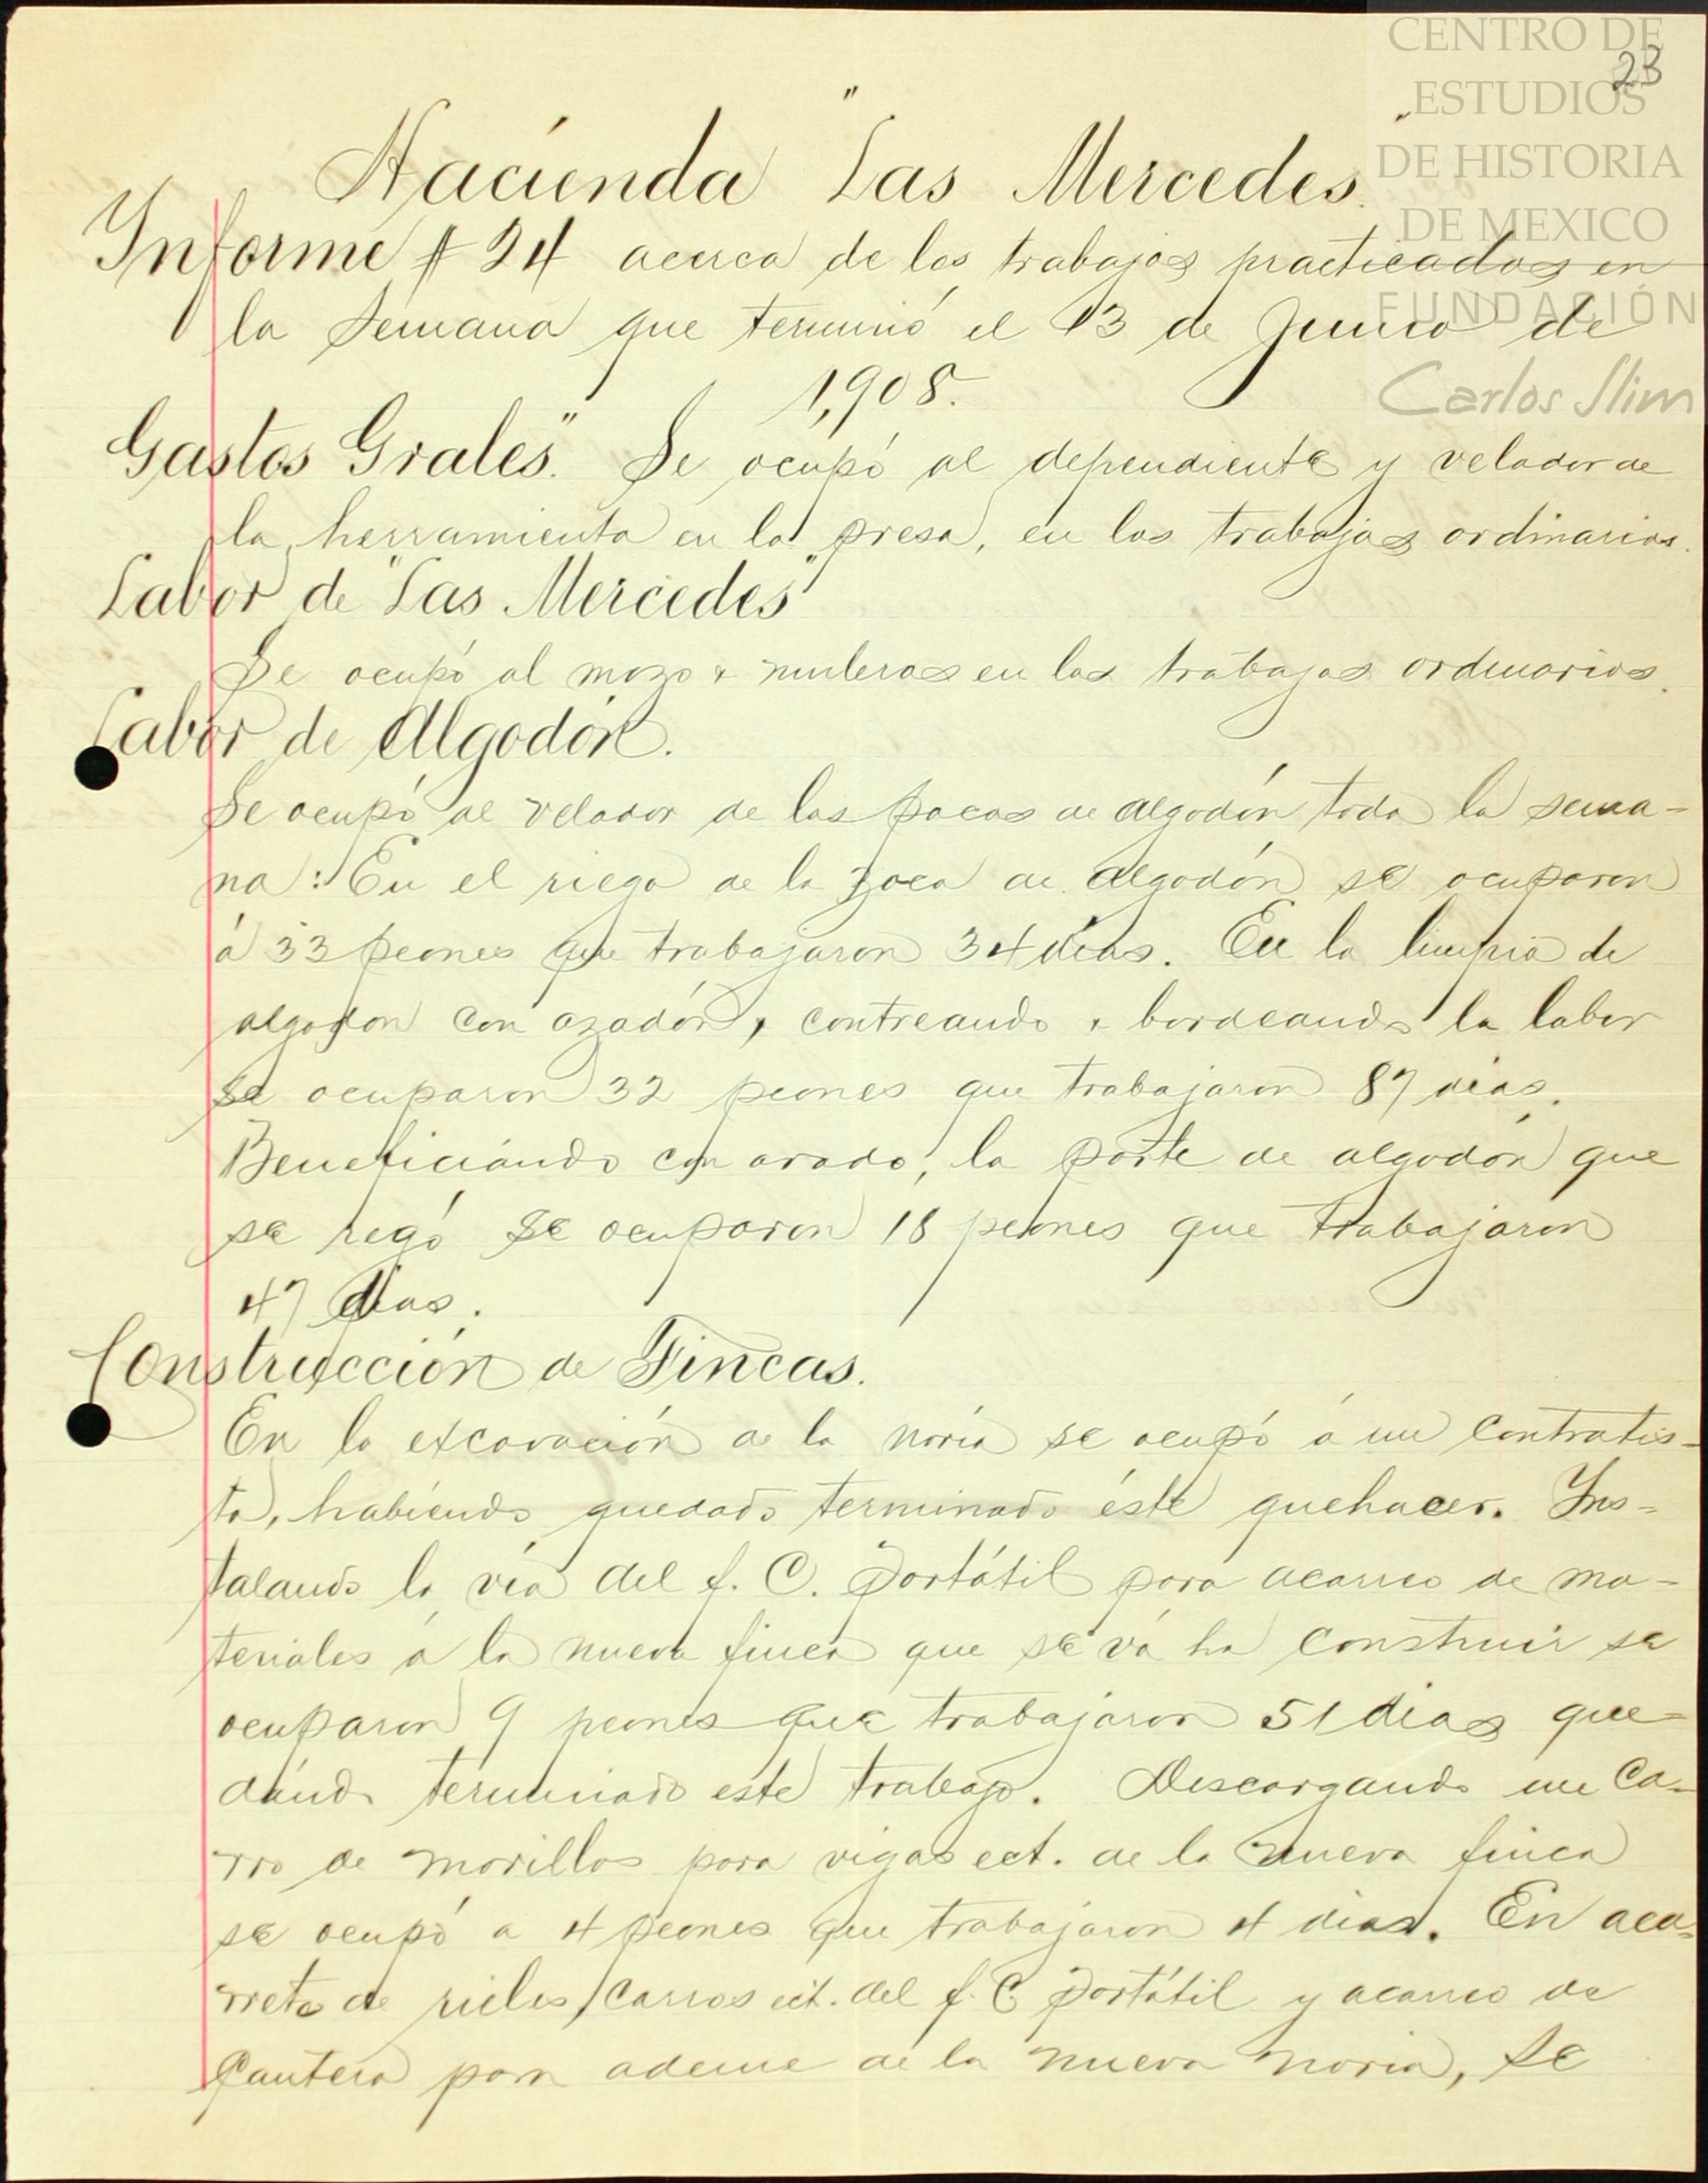 CENTRO DE
23
ESTUDIOS
DE HISTORIA
DE MEXICO
FUNDACIÓN
Carlos Slim
Hacienda "Las Mercedes"
Informe # 24 acerca de los trabajos practicados en
la semana que terminó el 13 de Junio de
1,908.
Gastos Grales". Se ocupó al dependiente y velador de
la herramienta en la presa, en los trabajos ordinarios.
Labor de "Las Mercedes"
Se ocupó al mozo y muleros en los trabajos ordinarios.
Labor de Algodón.
Se ocupó al velador de las pacas de algodón toda la sema-
na: En el riego de la zoca de algodón se ocuparon
á 33 peones que trabajaron 34 días. En la limpia de
algodon con azadón, contreando y bordeando la labor
se ocuparon 32 peones que trabajaron 87 dias.
Beneficiando con arado, la parte de algodón que
se regó se ocuparon 18 peones que trabajaron
47 dias.
Construcción de Fincas.
En la excavación de la noria se ocupó á un contratis-
ta, habiendo quedado terminado éste quehacer. Ins-
talando la vía del f. C. Portátil para acarreo de ma-
teriales á la nueva finca que se vá ha construir se
ocuparon 9 peones que trabajaron 51 dias que-
dando terminado este trabajo. Descargando un ca-
rro de morillos para vigas ect. de la nueva finca
se ocupó a 4 peones que trabajaron 4 dias. En aca-
rreto de rieles, carros ect. del f. C. Portátil y acarreo de
Cantera para ademe de la nueva noria, se